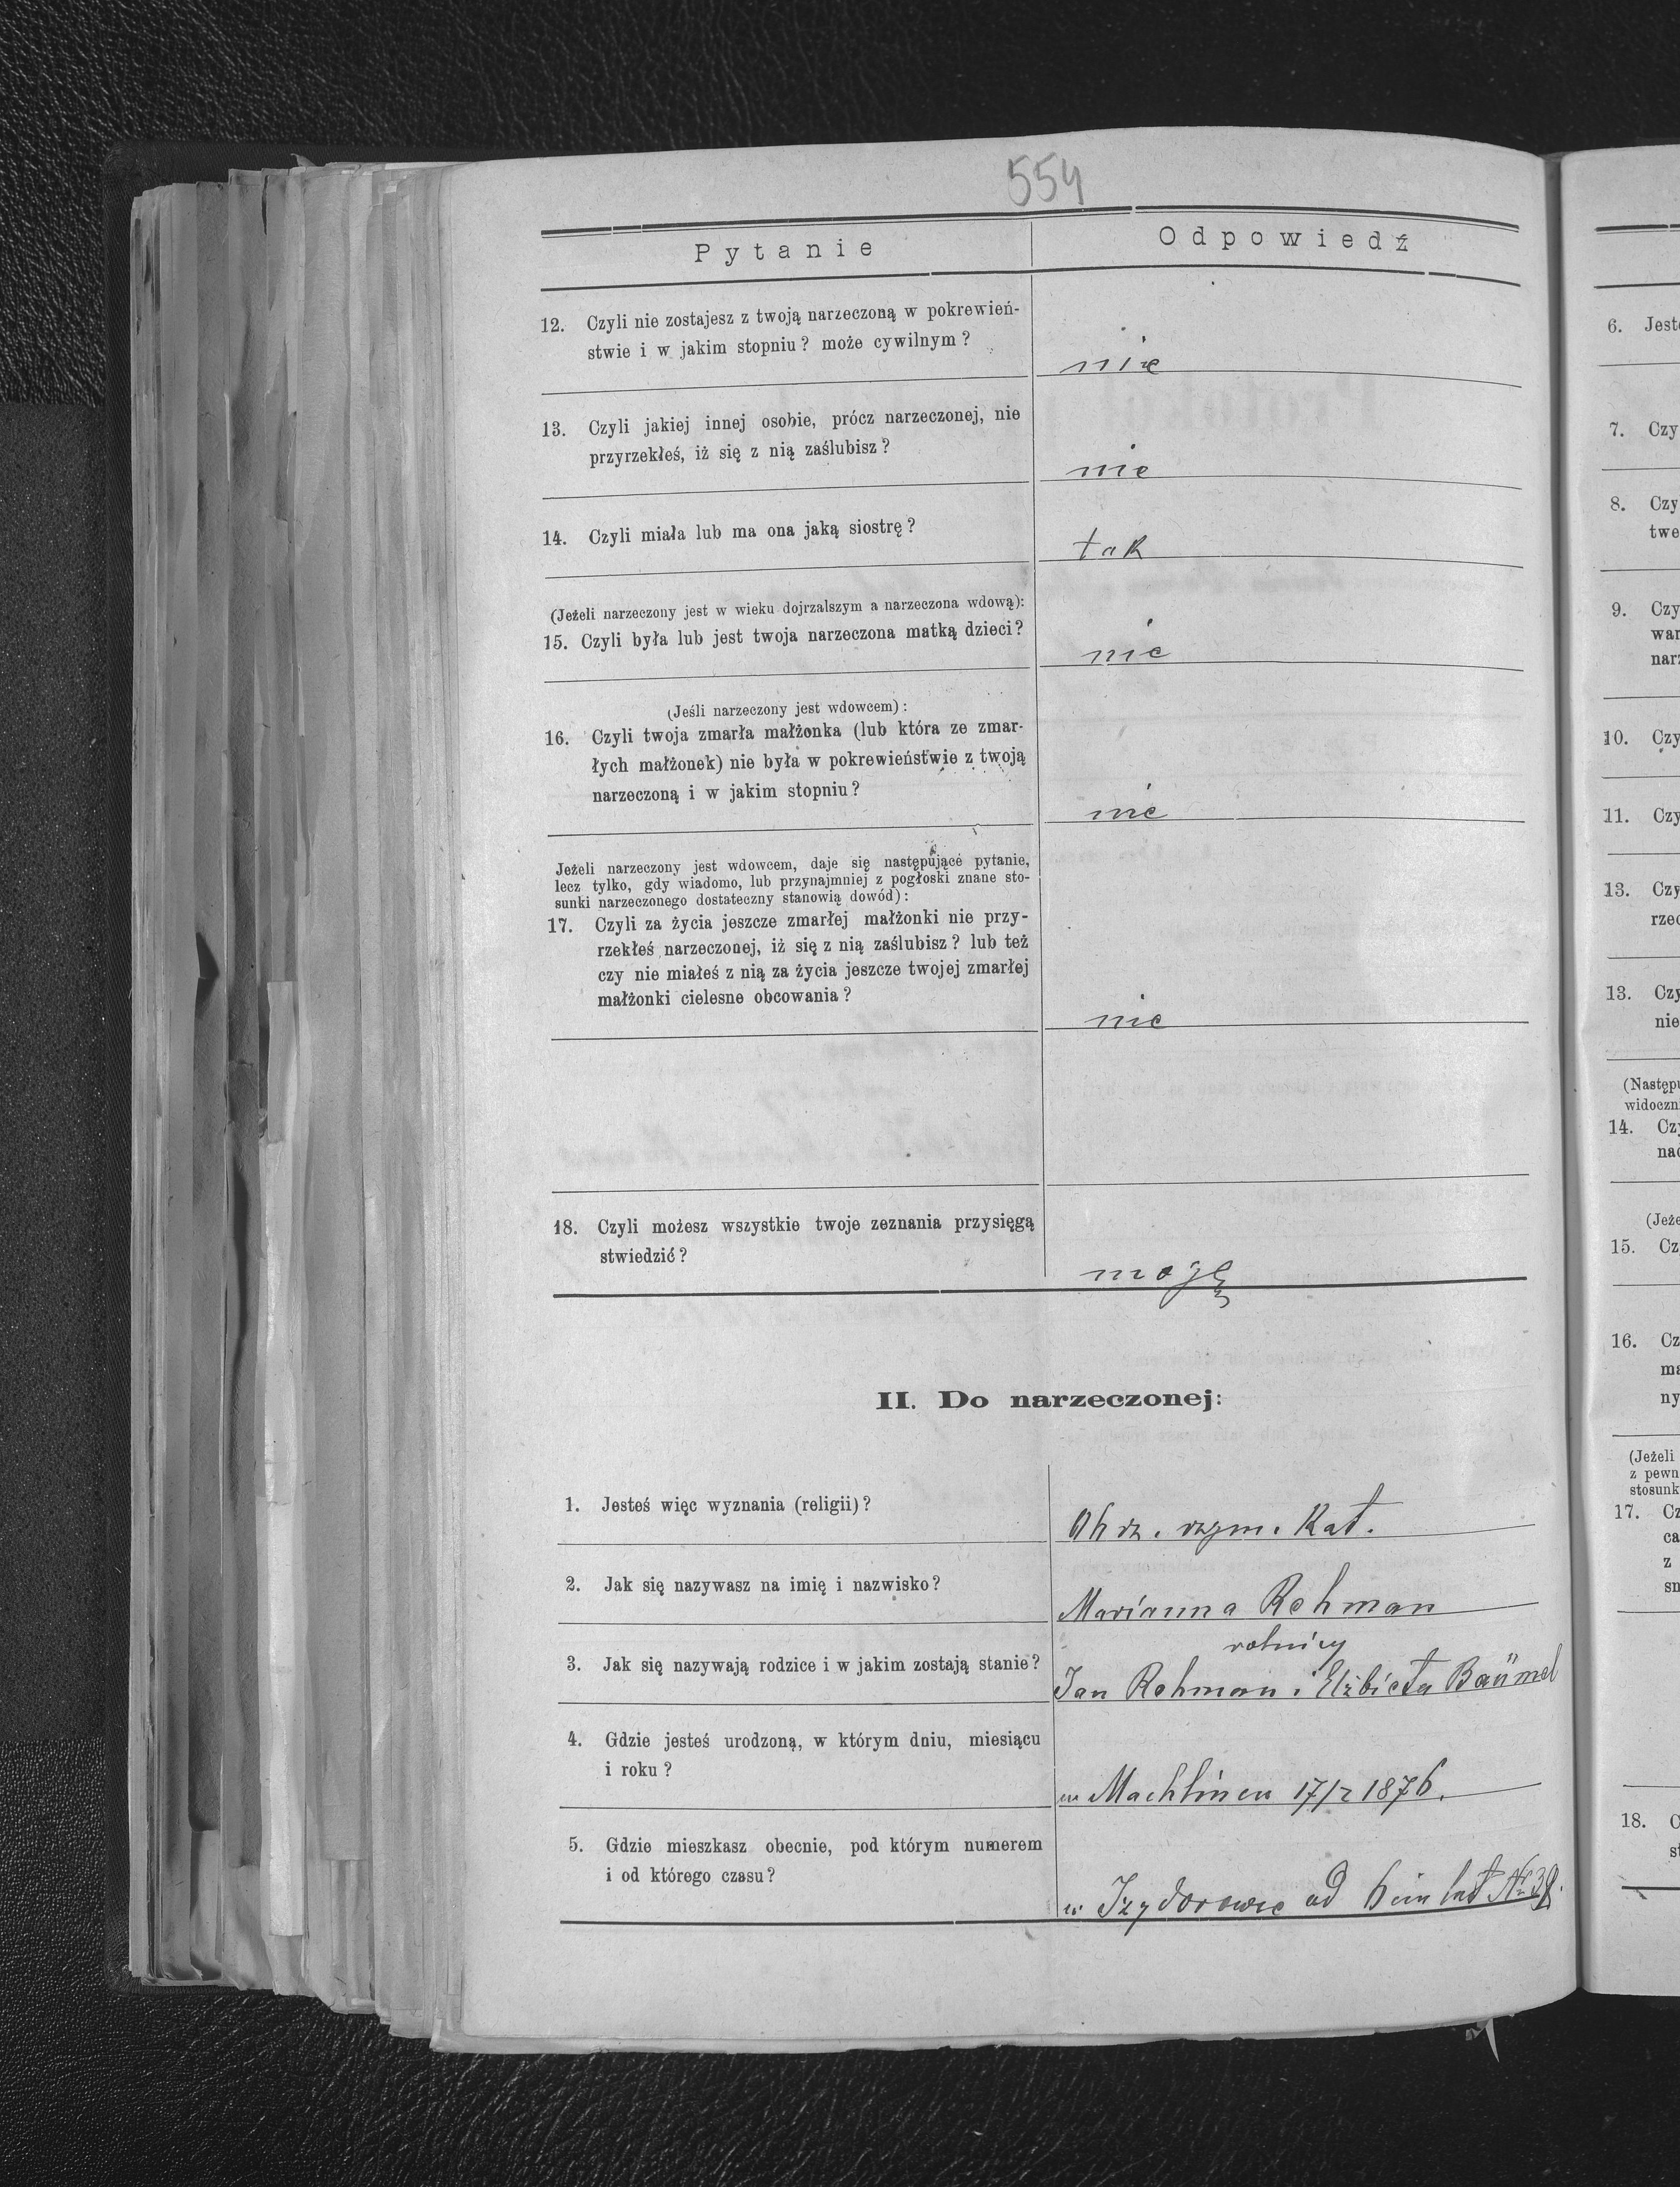 554
Pytanie
Odpowiedź
12. Czyli nie zostajesz z twoją narzeczoną w pokrewień-
stwie i w jakim stopniu? może cywilnym?
nie
13. Czyli jakiej innej osobie, prócz narzeczonej, nie
przyrzekłeś, iż się z nią zaślubisz?
nie
14. Czyli miała lub ma ona jaką siostrę?
tak
(Jeżeli narzeczony jest w wieku dojrzalszym a narzeczona wdową):
15. Czyli była lub jest twoja narzeczona matką dzieci?
nie
(Jeśli narzeczony jest wdowcem):
16. Czyli twoja zmarła małżonka (lub która ze zmar-
łych małżonek) nie była w pokrewieństwie z twoją
narzeczoną i w jakim stopniu?
nie
Jeżeli narzeczony jest wdowcem, daje się następujące pytanie,
lecz tylko, gdy wiadomo, lub przynajmniej z pogłoski znane sto-
sunki narzeczonego dostateczny stanowią dowód):
17. Czyli za życia jeszcze zmarłej małżonki nie przy-
rzekłeś narzeczonej, iż się z nią zaślubisz? lub też
czy nie miałeś z nią za życia jeszcze twojej zmarłej
małżonki cielesne obcowania?
nie
18. Czyli możesz wszystkie twoje zeznania przysięgą
stwiedzić?
mogę
II. Do narzeczonej:
1. Jesteś więc wyznania (religii)?
Ob rz. rzym. Kat.
2. Jak się nazywasz na imię i nazwisko?
Marianna Rehman
rolnicy
3. Jak się nazywają rodzice i w jakim zostają stanie?
Jan Rehman i Elżbieta Baümel
4. Gdzie jesteś urodzoną, w którym dniu, miesiącu
i roku?
w Machlincu 17/2 1876.
5. Gdzie mieszkasz obecnie, pod którym numerem
i od którego czasu?
w Izydorowie od lat №
6. Jest
7. Czy
8. Czy
twe
9. Czy
war
nar
10. Czy
11. Czy
13. Czy
rzec
13. Czy
nie
(Następu
widoczn
14. Czy
nad
(Jeże
15. Cz
16. Cz
ma
ny
(Jeżeli
z pewn
stosunk
17. Cz
ca
z
sm
18. C
st